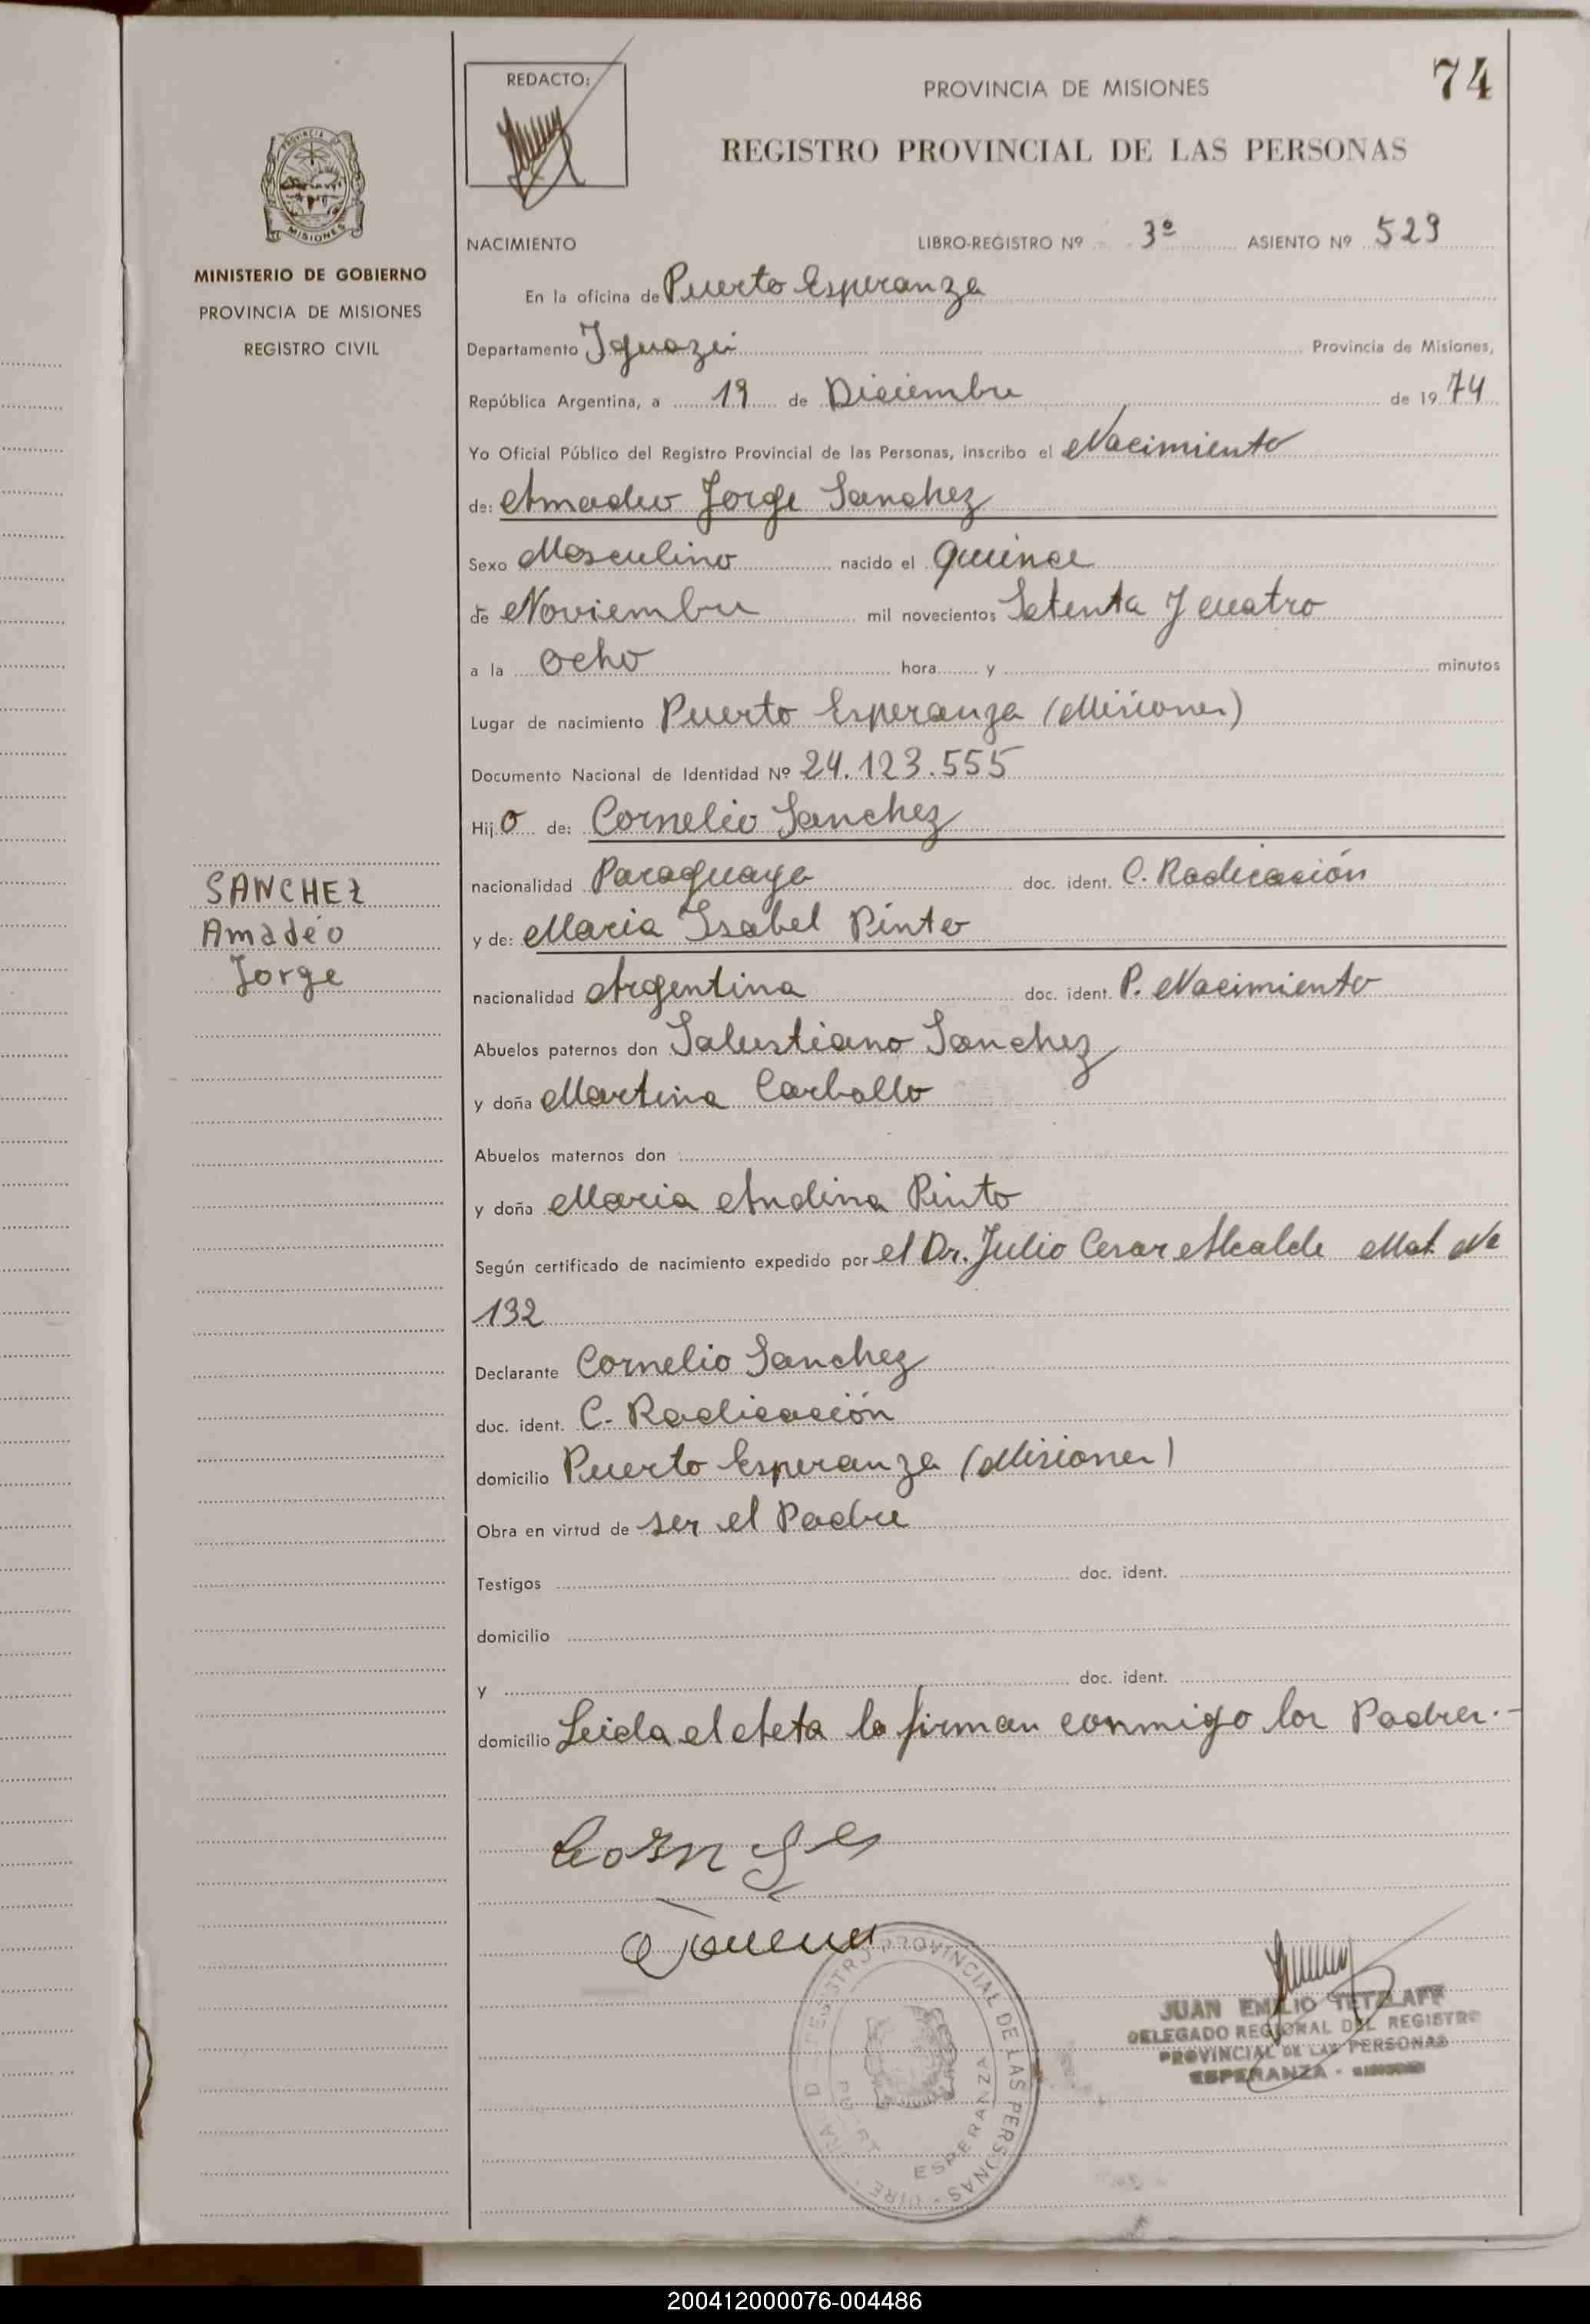 74
REDACTO:
PROVINCIA DE MISIONES
REGISTRO PROVINCIAL DE LAS PERSONAS
PROVINCIA DE
MISIONES
MINISTERIO DE GOBIERNO
PROVINCIA DE MISIONES
REGISTRO CIVIL
NACIMIENTO LIBRO-REGISTRO Nº 3º ASIENTO Nº 529
En la oficina de Puerto Esperanza
Departamento Iguazú Provincia de Misiones,
República Argentina, a 19 de Diciembre de 1974
Yo Oficial Público del Registro Provincial de las Personas, inscribo el Nacimiento
de: Amadeo Jorge Sanchez
Sexo Masculino nacido el quince
de Noviembre mil novecientos Setenta y cuatro
a la ocho hora y minutos
Lugar de nacimiento Puerto Esperanza (Misiones)
Documento Nacional de Identidad Nº 24.123.555
Hijo de: Cornelio Sanchez
SANCHEZ
Amadéo
Jorge
nacionalidad Paraguaya doc. ident. C. Radicación
y de: Maria Isabel Pinto
nacionalidad Argentina doc. ident. P. Nacimiento
Abuelos paternos don Salustiano Sanchez
y doña Martina Carballo
Abuelos maternos don
y doña Maria Andina Pinto
Según certificado de nacimiento expedido por el Dr. Julio Cesar Alcalde Mat. Nº
132
Declarante Cornelio Sanchez
doc. ident. C. Radicación
domicilio Puerto Esperanza (Misiones)
Obra en virtud de ser el Padre
Testigos doc. ident.
domicilio
y doc. ident.
domicilio Leida el Acta la firman conmigo los Padres.-
REGISTRO PROVINCIAL DE LAS PERSONAS
ESPERANZA
JUAN EMILIO TETZLAFF
DELEGADO REGIONAL DEL REGISTRO
PROVINCIAL DE LAS PERSONAS
ESPERANZA - MISIONES
200412000076-004486